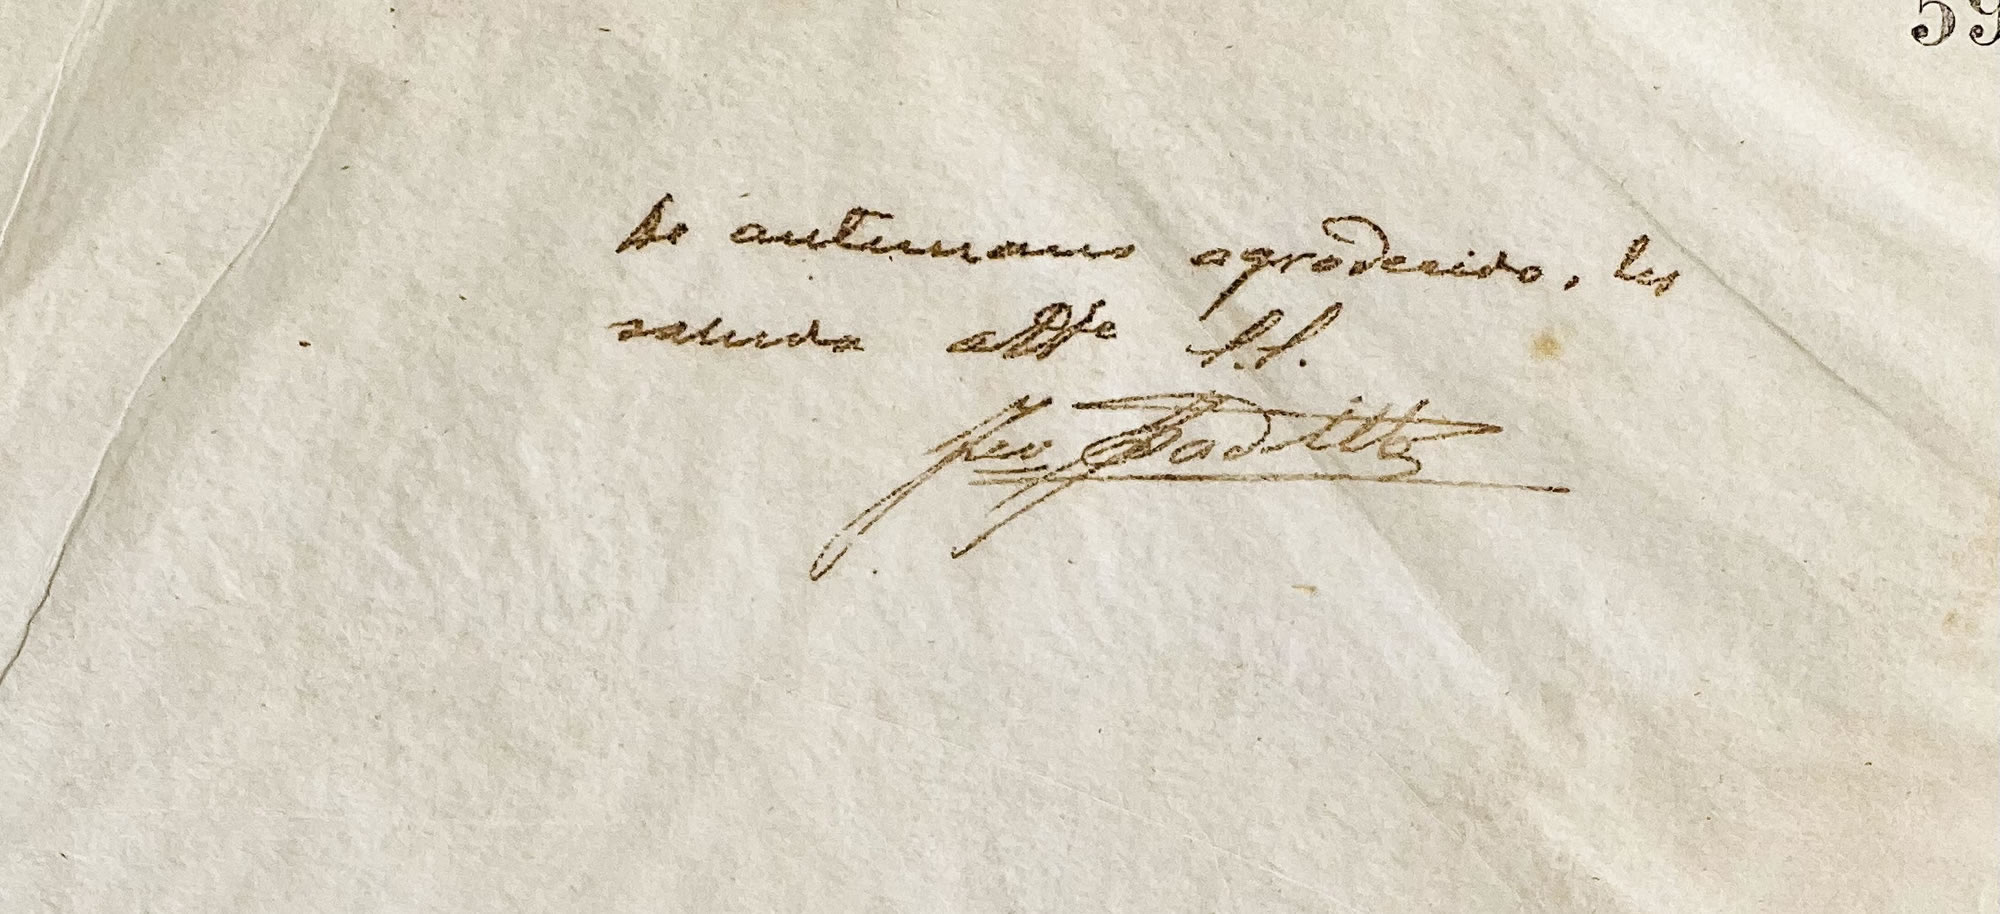 59
De antemano agradecido, les
saluda atte S.S.
Padilla